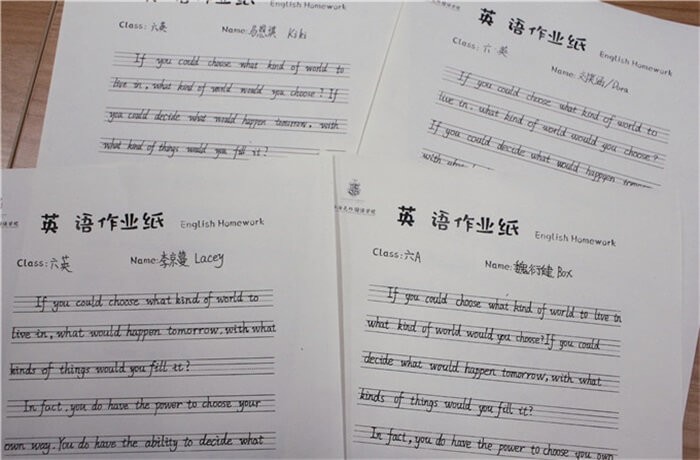 英语作业纸 English Homework
Class: 六英 Name: Kiki
If you could choose what kind of world to
live in, what kind of world would you choose? If
you could decide what would happen tomorrow, with
what kind of things would you fill it?
英语作业纸 English Homework
Class: 六英 Name: /Dora
If you could choose what kind of world to
live in. what kind of world would you choose?
If you could decide what would happen tomorrow
with what
英语作业纸 English Homework
Class: 六英 Name: 李宗蔓 Lacey
If you could choose what kind of world to
live in, what would happen tomorrow, with what
kinds of things would you fill it?
In fact, you do have the power to choose your
own way. You do have the ability to decide what
英语作业纸 English Homework
Class: 六A Name: 魏 健 Box
If you could choose what kind of world to live in
what kind of world would you choose? If you could
decide what would happen tomorrow, with what
kinds of things would you fill it?
In fact, you do have the power to choose you own